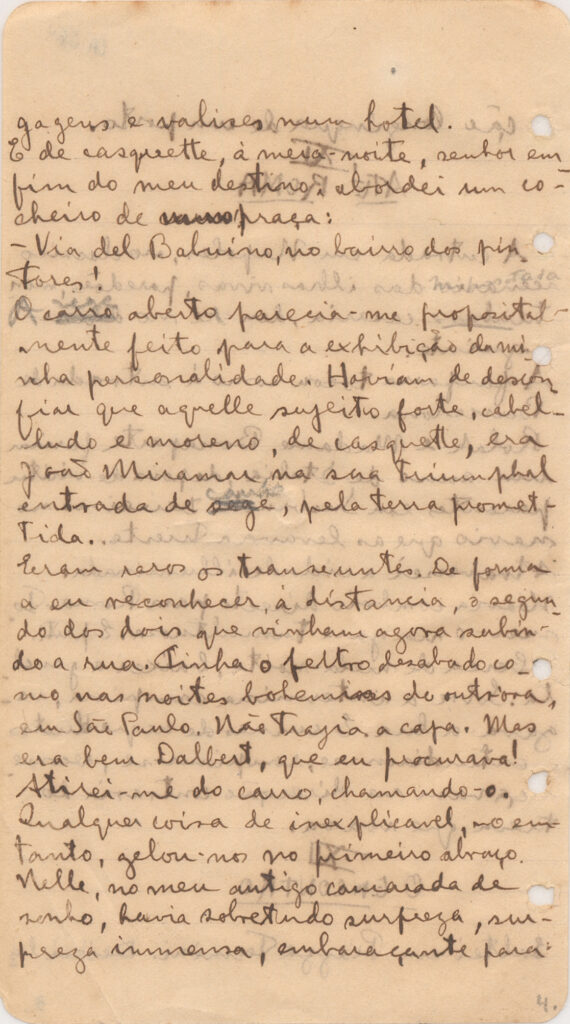 gagens e valises num hotel.
E de casquette, á meia-noite, senhor em
fim do meu destino, abordei um co-
cheiro de praça:
- Via del Babuino, no bairro dos pin-
tores!
O carro aberto parecia-me proposital-
mente feito para a exhibição da mi
nha personalidade. Haviam de descon-
fiar que aquelle sujeito forte, cabel-
ludo e moreno, de casquette, era
João Miramar, na sua triumphal
entrada de sege, pela terra promet-
tida..
Eram raros os transeuntes. De forma
a eu reconhecer, á distancia, o segun-
do dos dois que vinham agora subin-
do a rua. Tinha o feltro desabado co-
mo nas noites bohemias de outrora,
em São Paulo. Não trazia a capa. Mas
era bem Dalbert, que eu procurava!
Atirei-me do carro, chamando-o.
Qualquer coisa de inexplicavel, no em-
tanto, gelou-nos no primeiro abraço.
Nelle, no meu antigo camarada de
sonho, havia sobretudo surpreza, sur-
preza immensa, embaraçante para
4.